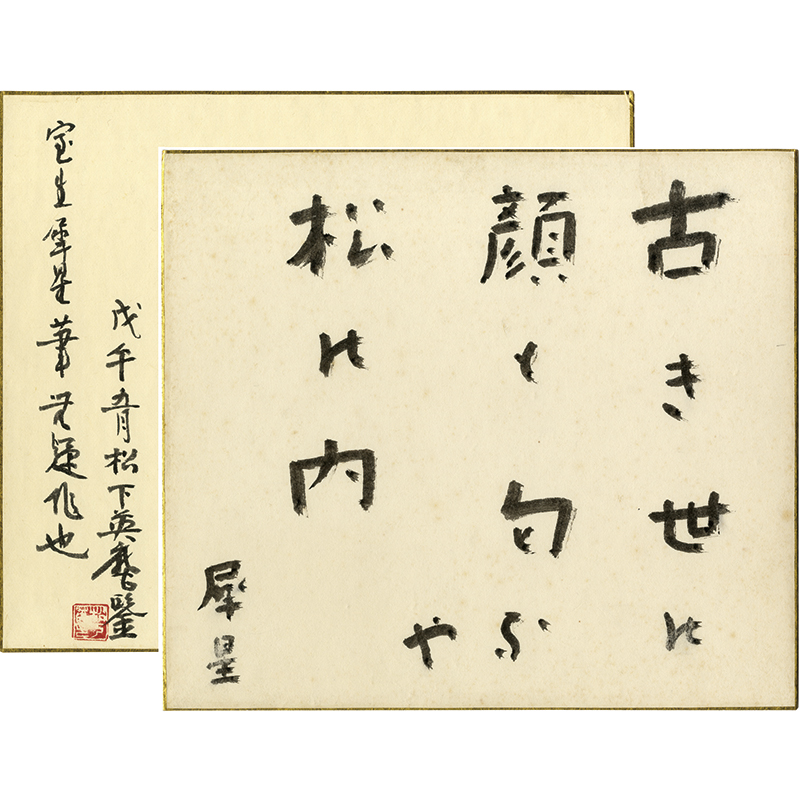 古き世の
顔も匂ふ
や
松の内
犀星
室生犀星筆無疑作也
戊午五月松下英麿鑒